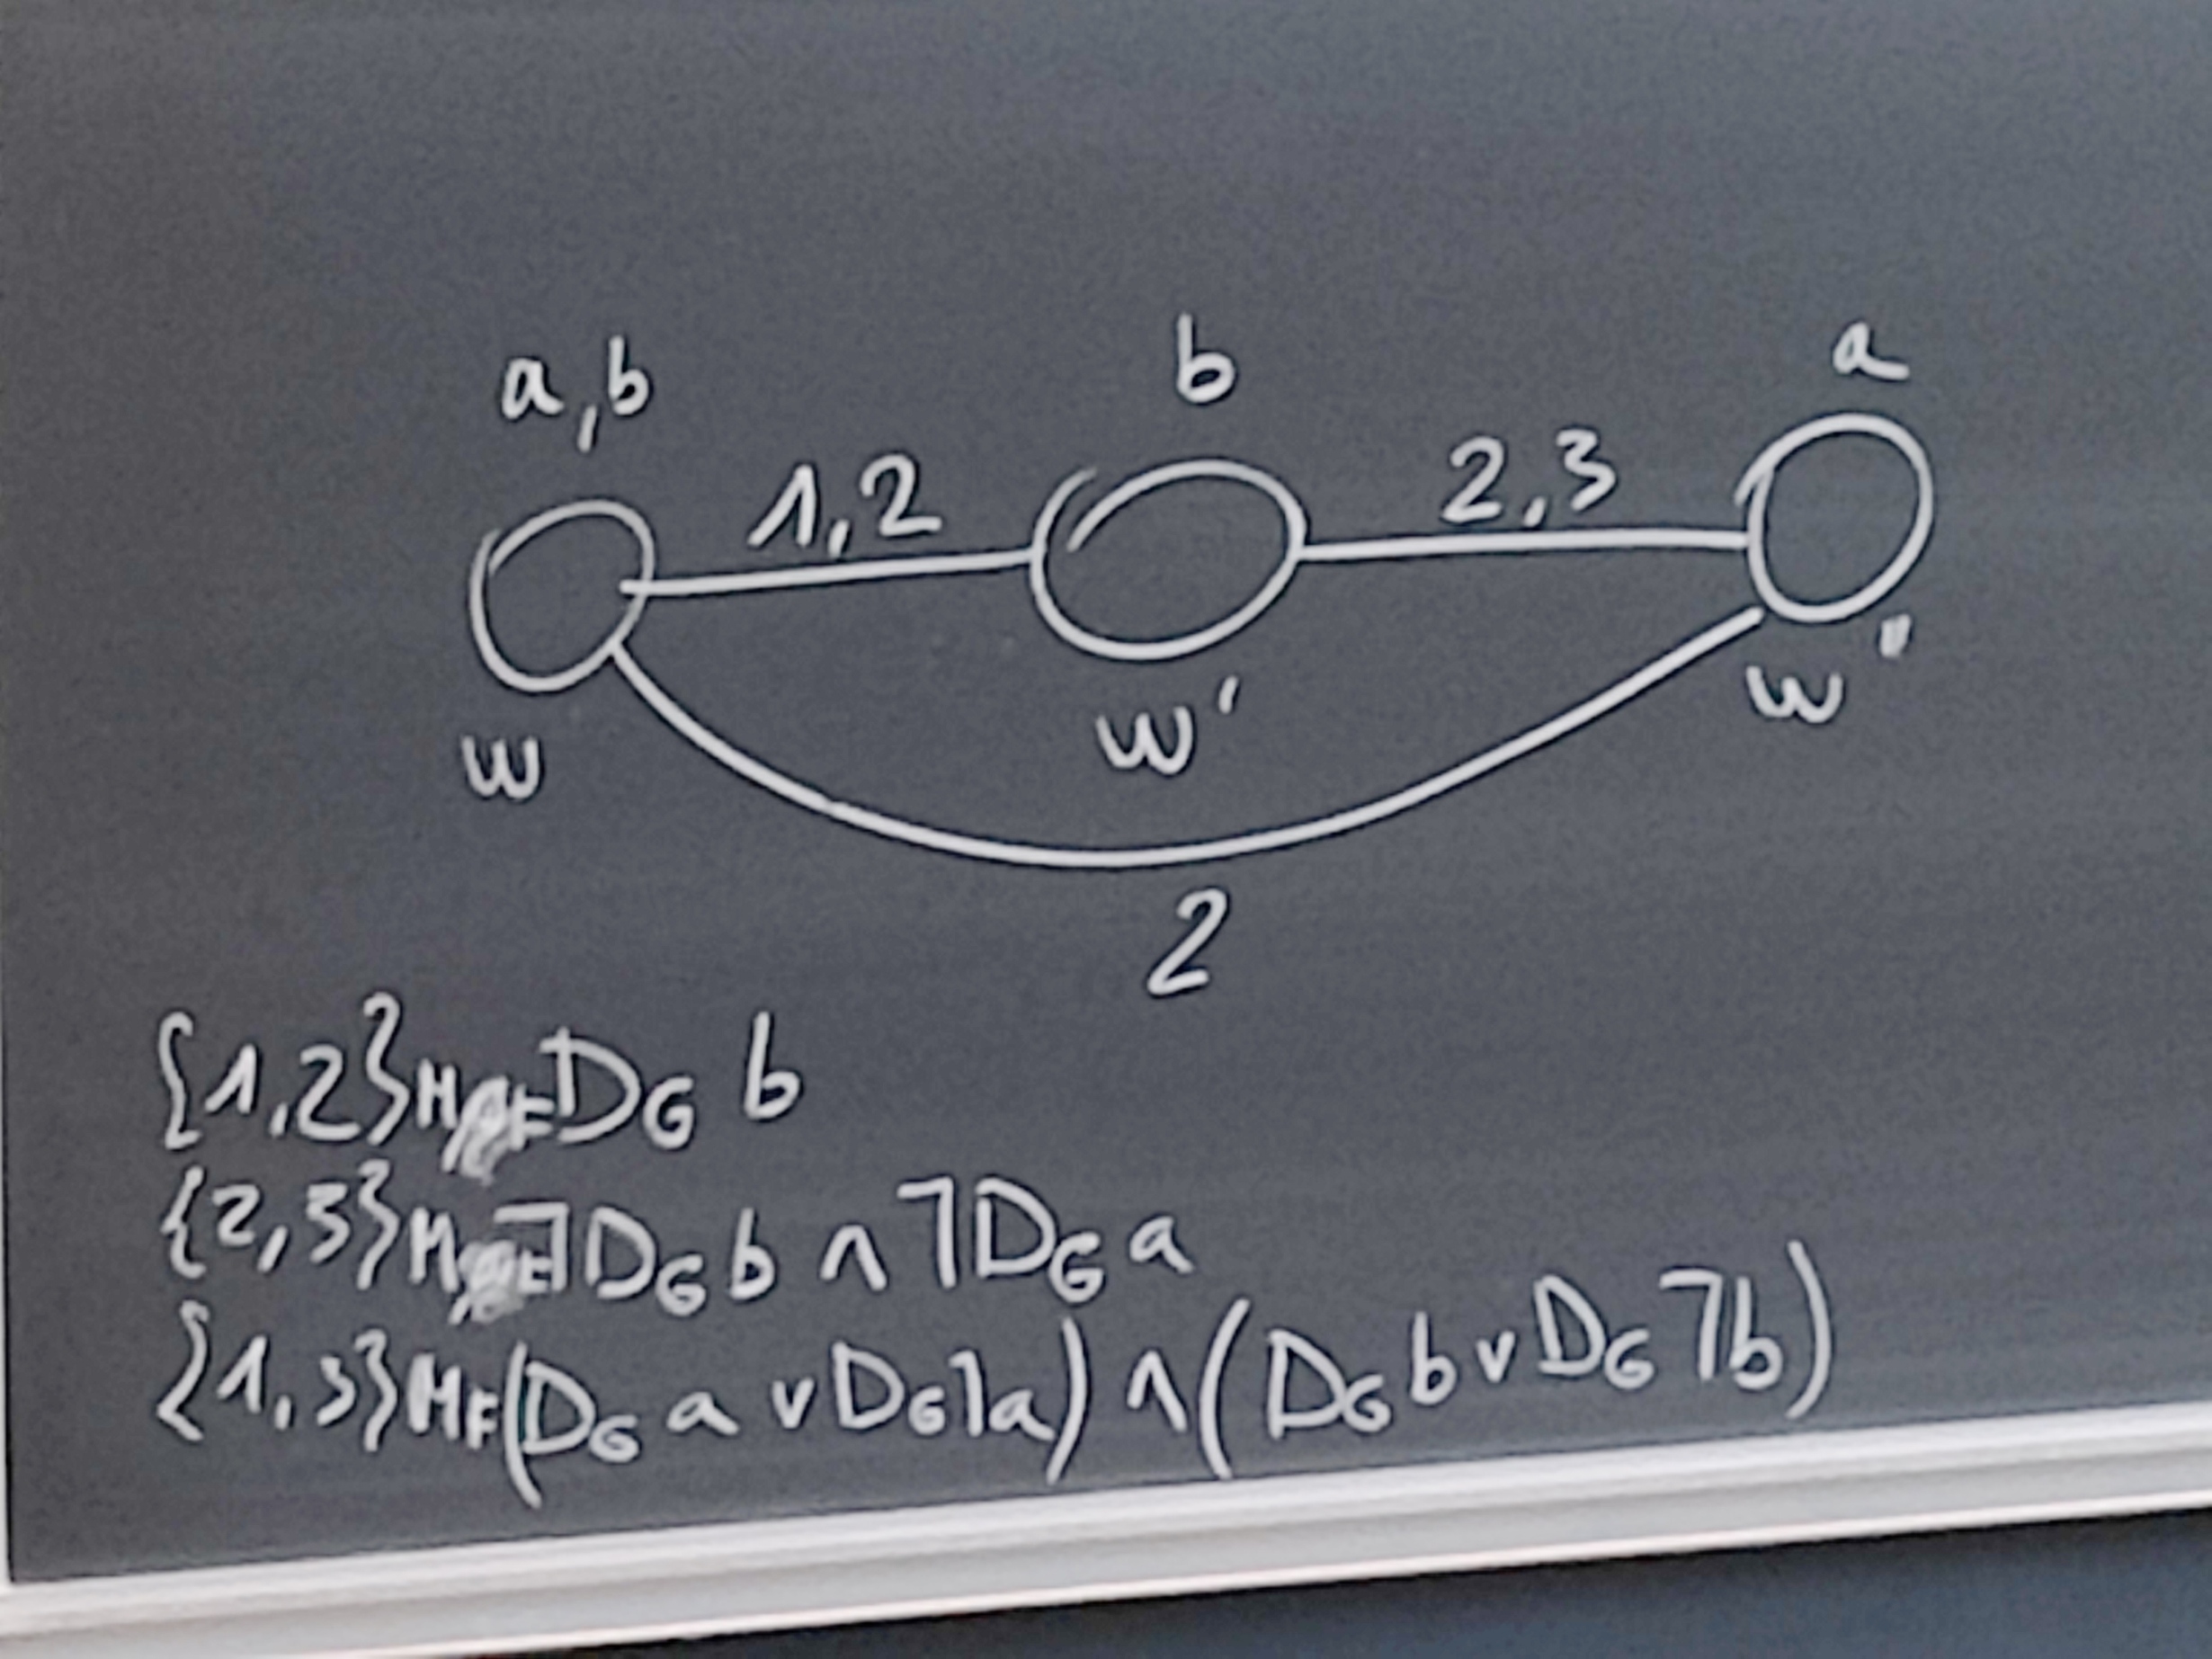 a,b b a
1,2 2,3
w w' w"
2
{1,2} M ⊨ D_G b
{2,3} M ⊨ ¬D_G b ∧ ¬D_G a
{1,3} M ⊨ (D_G a ∨ D_G ¬a) ∧ (D_G b ∨ D_G ¬b)